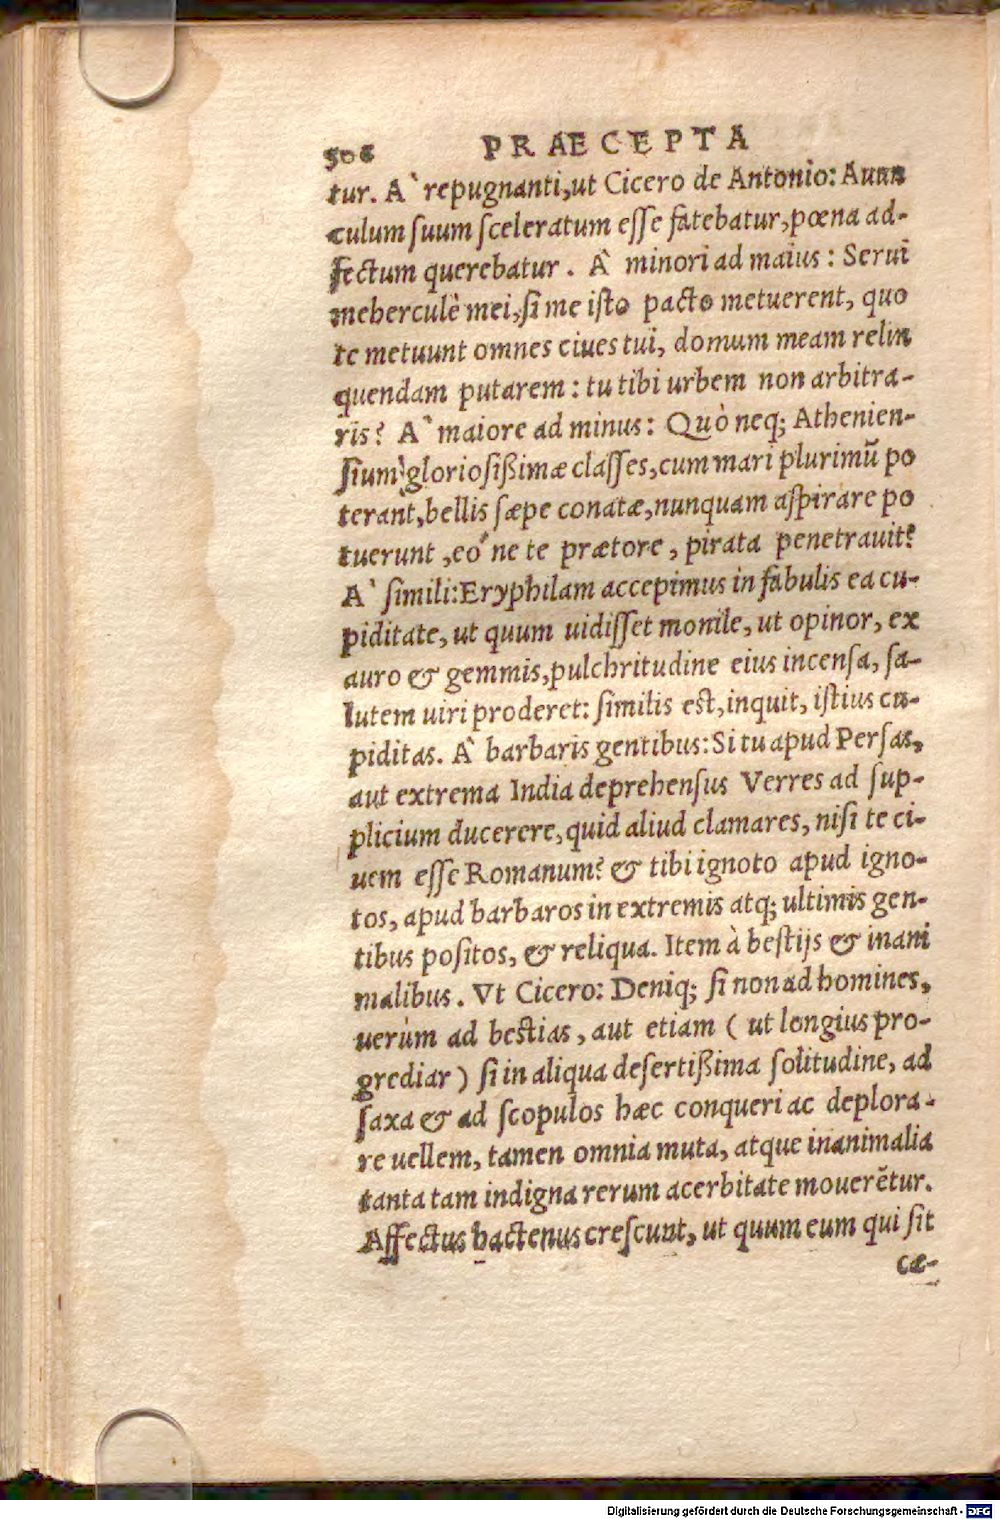 506 PRAECEPTA
tur. A` repugnanti, ut Cicero de Antonio: Auun
culum suum sceleratum esse fatebatur, pœna ad-
fectum querebatur. A` minori ad maius: Serui
mehercule` mei, si me isto pacto metuerent, quo
te metuunt omnes ciues tui, domum meam relin
quendam putarem: tu tibi urbem non arbitra-
ris? A` maiore ad minus: Quò neq; Athenien-
sium gloriosißimæ classes, cum mari plurimū po
terant, bellis sæpe conatæ, nunquam aspirare po
tuerunt, eo´ ne te prætore, pirata penetrauit?
A` simili: Eryphilam accepimus in fabulis ea cu-
piditate, ut quum uidisset monile, ut opinor, ex
auro & gemmis, pulchritudine eius incensa, sa-
lutem uiri proderet: similis est, inquit, istius cu-
piditas. A` barbaris gentibus: Si tu apud Persas,
aut extrema India deprehensus Verres ad sup-
plicium ducerere, quid aliud clamares, nisi te ci-
uem esse Romanum? & tibi ignoto apud igno-
tos, apud barbaros in extremis atq; ultimis gen-
tibus positos, & reliqua. Item à bestijs & inani
malibus. Vt Cicero: Deniq; si non ad homines,
uerùm ad bestias, aut etiam ( ut longius pro-
grediar ) si in aliqua desertißima solitudine, ad
saxa & ad scopulos hæc conqueri ac deplora-
re uellem, tamen omnia muta, atque inanimalia
tanta tam indigna rerum acerbitate mouerētur.
Affectus hactenus crescunt, ut quum eum qui sit
cæ-
Digitalisierung gefördert durch die Deutsche Forschungsgemeinschaft - DFG